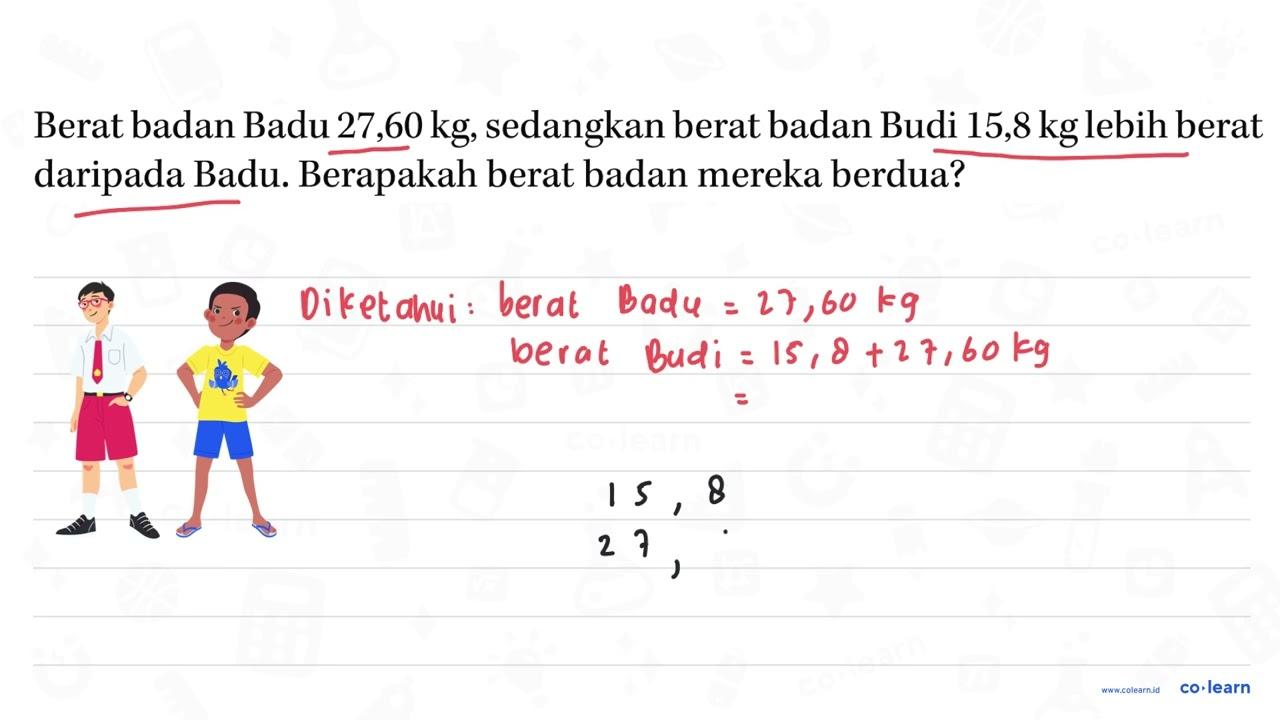 Berat badan Badu 27,60 kg, sedangkan berat badan Budi 15,8 kg lebih berat
daripada Badu. Berapakah berat badan mereka berdua?
co·learn
Diketahui: berat Badu = 27,60 kg
berat Budi = 15,8 + 27,60 kg
=
co·learn
15,8
27,
co·learn
co·learn
www.colearn.id co·learn